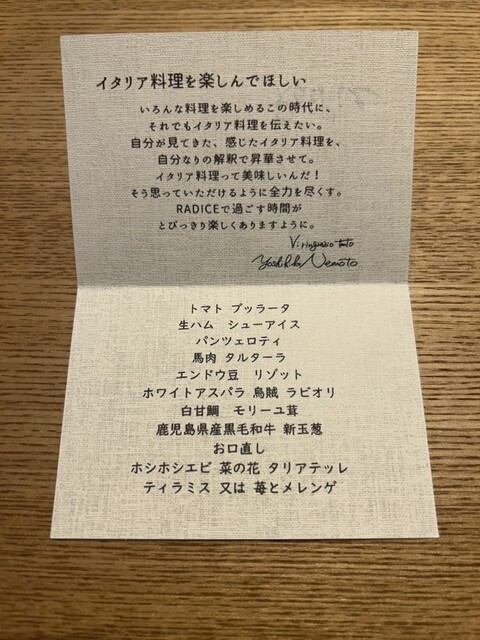 イタリア料理を楽しんでほしい
いろんな料理を楽しめるこの時代に、
それでもイタリア料理を伝えたい。
自分が見てきた、感じたイタリア料理を、
自分なりの解釈で昇華させて。
イタリア料理って美味しいんだ！
そう思っていただけるように全力を尽くす。
RADICEで過ごす時間が
とびっきり楽しくありますように。
Vi ringrazio tanto
Nemoto
トマト ブッラータ
生ハム シューアイス
パンツェロティ
馬肉 タルターラ
エンドウ豆 リゾット
ホワイトアスパラ 烏賊 ラビオリ
白甘鯛 モリーユ茸
鹿児島県産黒毛和牛 新玉葱
お口直し
ホシホシエビ 菜の花 タリアテッレ
ティラミス 又は 苺とメレンゲ